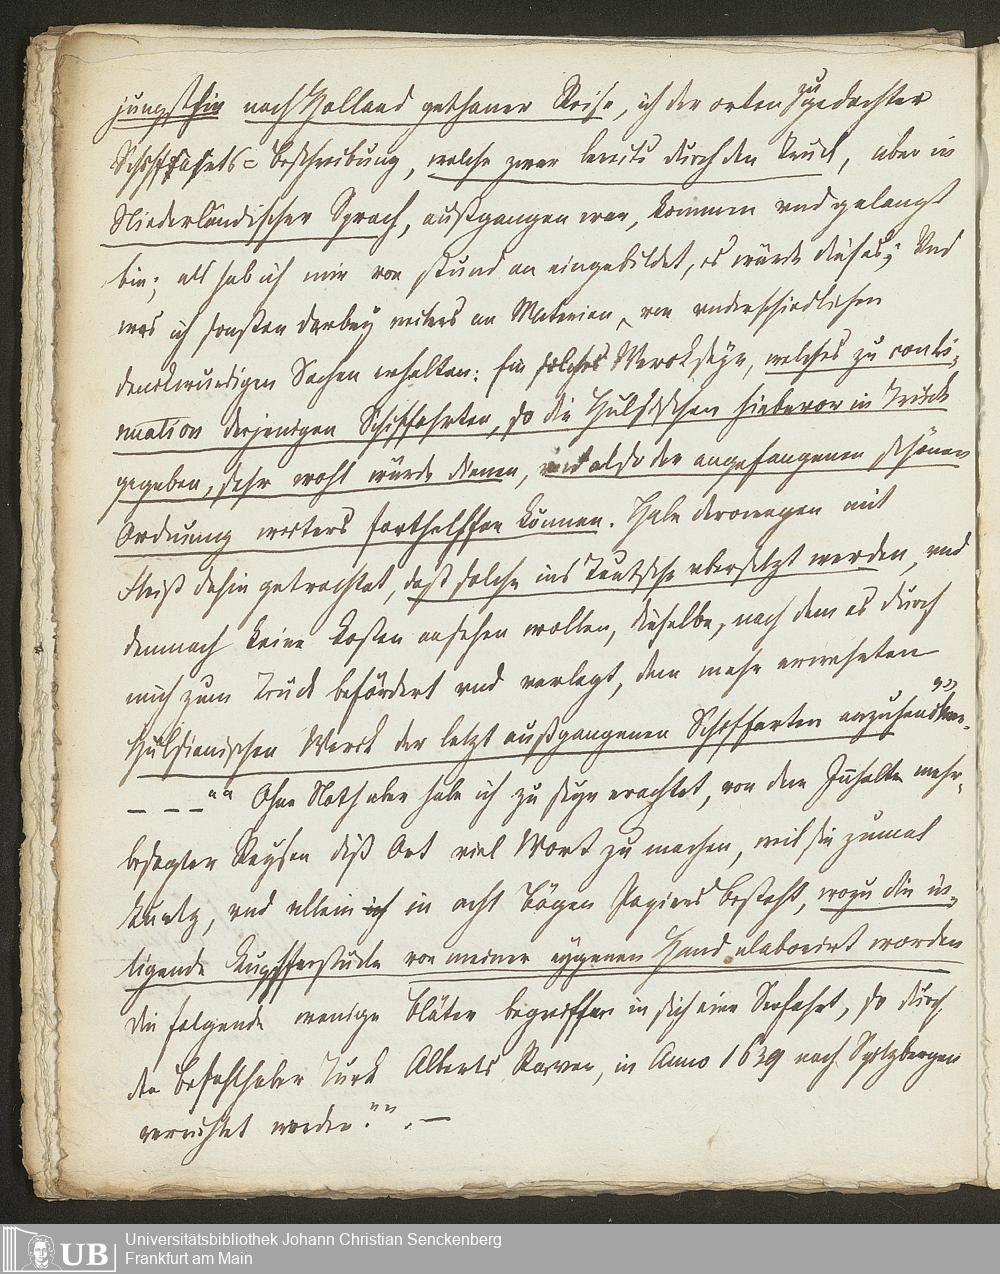 jüngsthin nach Holland gethaner Reise, ich der orten zu gedachter
Schifffahrts=Beschreibung, welche zwar bereits durch den Truck, aber in
Niederländischer Sprach, außgangen war, kommen vnd gelangt
bin; als hab ich mir von stund an eingebildet, es würde dieses, Und
was ich sonsten darbey weiters an Materien, von vnderschiedlichen
denckwürdigen Sachen erhalten: Ein solches Werck seyn, welches zu conti-
nuation derjenigen Schiffahrten, so die Hulsischen hiebevor in Truck
gegeben, sehr wohl würde dienen, vnd also der angefangenen schönen
Ordnung weiters forthelffen können. Habe derowegen mit
Fleiß dahin getrachtet, daß solche ins Teutsche vbersetzt werden, vnd
demnach keine Kosten ansehen wollen, dieselbe, nach dem es durch
mich zum Truck befördert vnd verlegt, dem mehr erwehnten
Hulsianischen Werck der letzt außgangenen Schiffarten anzuhencken
– – – "" Ohne Noth aber habe ich zu seyn erachtet, von dem Inhalte mehr-
besagter Reysen diß Ort viel Wort zu machen, weil sie zumal
kurtz, vnd allein in acht Bögen Papiers besteht, wozu die
ligende Kupfferstücke von meiner eygenen Hand elaborirt worden
Die folgende wenige Bläter begreiffen in sich eine Seefahrt, so durch
den Befehlhaber Türk Alberts Raven, in Anno 1639 nach Spitzbergen
verrichtet worden."" . –
Universitätsbibliothek Johann Christian Senckenberg
Frankfurt am Main
UB